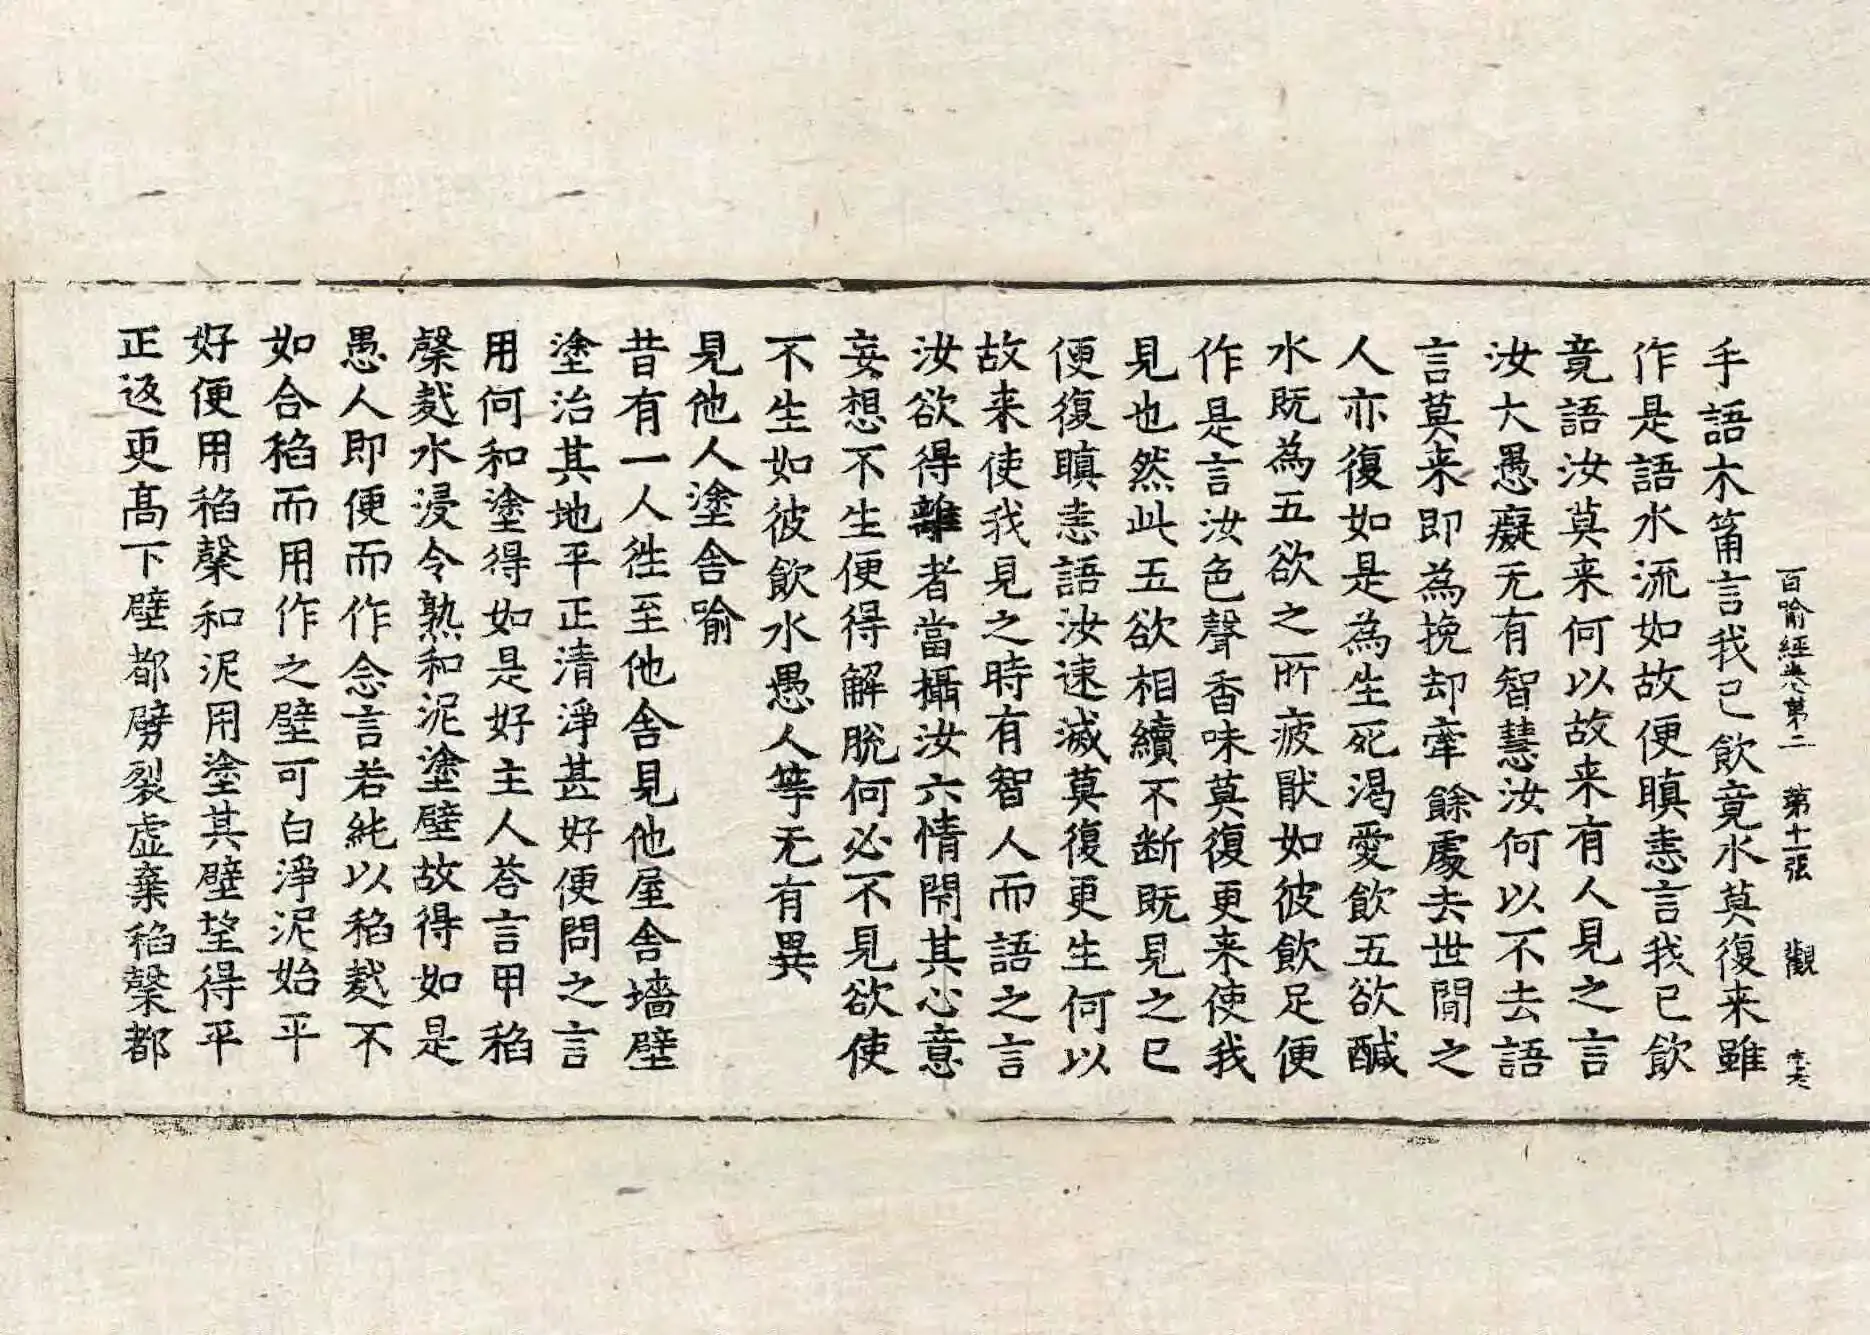 百喻經卷第二　第十一張　觀
手語木筩言我已飲竟水莫復来雖
作是語水流如故便瞋恚言我已飲
竟語汝莫来何以故来有人見之言
汝大愚癡无有智慧汝何以不去語
言莫来即為挽却牽餘處去世閒之
人亦復如是為生死渴愛飲五欲醎
水既為五欲之所疲猒如彼飲足便
作是言汝色聲香味莫復更来使我
見也然此五欲相續不断既見之已
便復瞋恚語汝速滅莫復更生何以
故来使我見之時有智人而語之言
汝欲得離者當攝汝六情閇其心意
妄想不生便得解脫何必不見欲使
不生如彼飲水愚人等无有異
見他人塗舍喻
昔有一人往至他舍見他屋舍墻壁
塗治其地平正清淨甚好便問之言
用何和塗得如是好主人荅言甲稻
䅽𪍿水浸令熟和泥塗壁故得如是
愚人即便而作念言若純以稻𪍿不
如合稻而用作之壁可白淨泥始平
好便用稻䅽和泥用塗其壁望得平
正返更髙下壁都劈裂虛棄稻䅽都